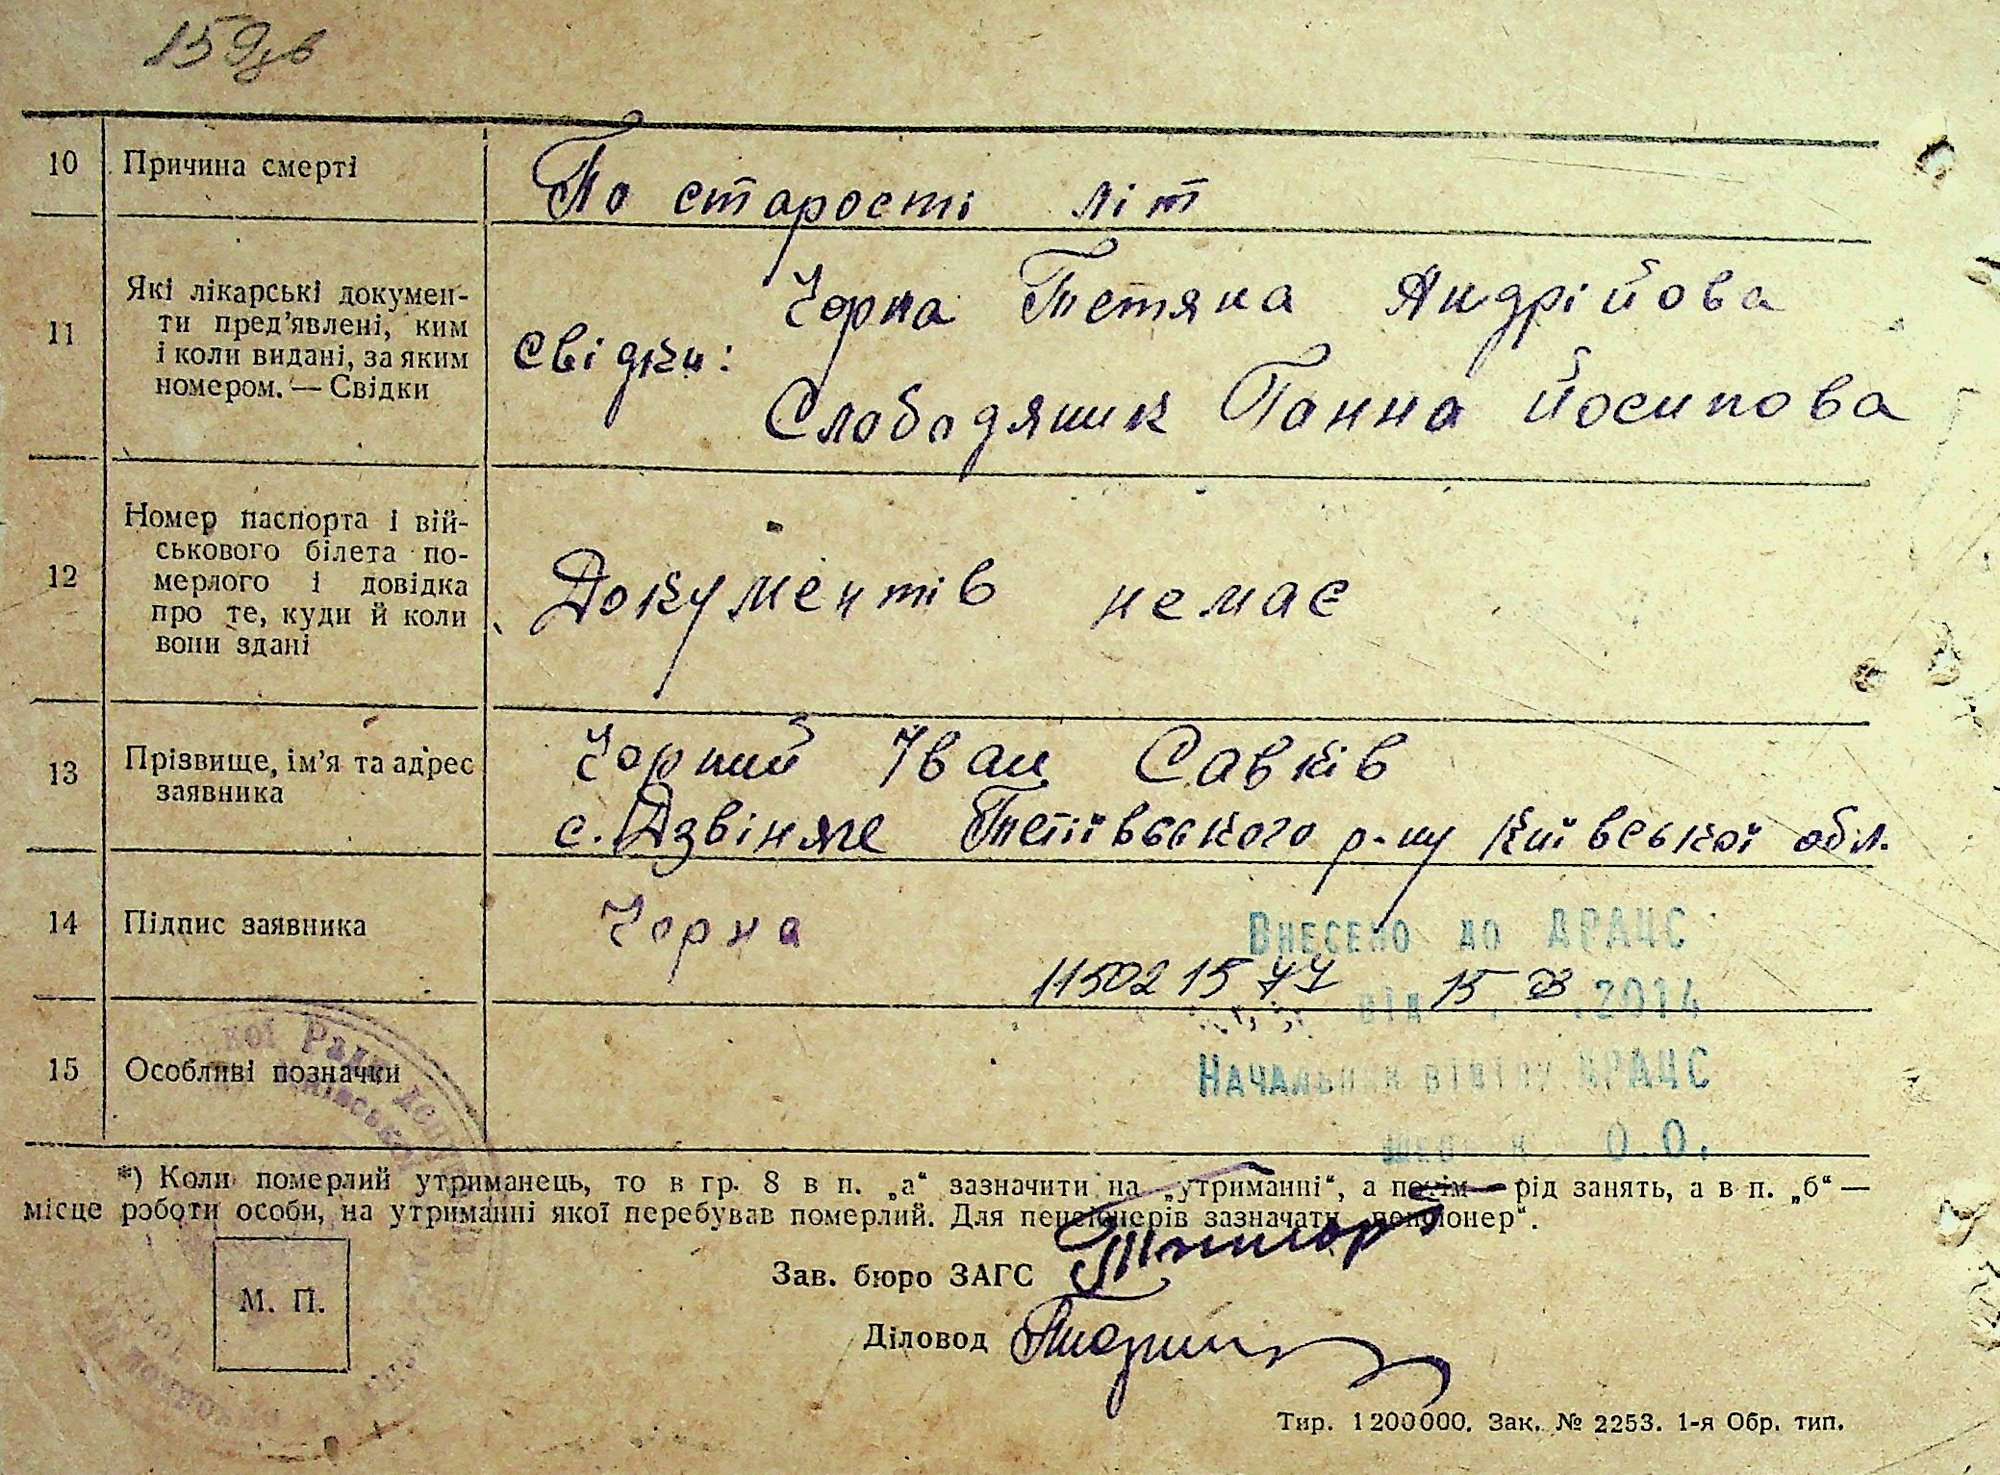 10 Причина смерті По старості літ
11 Які лікарські докумен-
ти пред'явлені, ким
і коли видані, за яким
номером. — Свідки
свідки: Чорна Тетяна Андрійова
Слободяник Ганна Йосипова
12 Номер паспорта і вій-
ськового білета по-
мерлого і довідка
про те, куди й коли
вони здані
Документів немає
13 Прізвище, ім'я та адрес
заявника
Чорний Іван Савків
с. Дзвіняче Тетіївського р-ну Київської обл.
14 Підпис заявника Чорна
Внесено до ДРАЦС
від 15 .2014
15 Особливі позначки
Начальник відділу ДРАЦС
О.О.
*) Коли померлий утриманець, то в гр. 8 в п. „а“ зазначити на „утриманні“, а потім — рід занять, а в п. „б“ —
місце роботи особи, на утриманні якої перебував померлий. Для пенсіонерів зазначати „пенсіонер“.
Зав. бюро ЗАГС
М. П.
Діловод
Тир. 1200000. Зак. № 2253. 1-я Обр. тип.